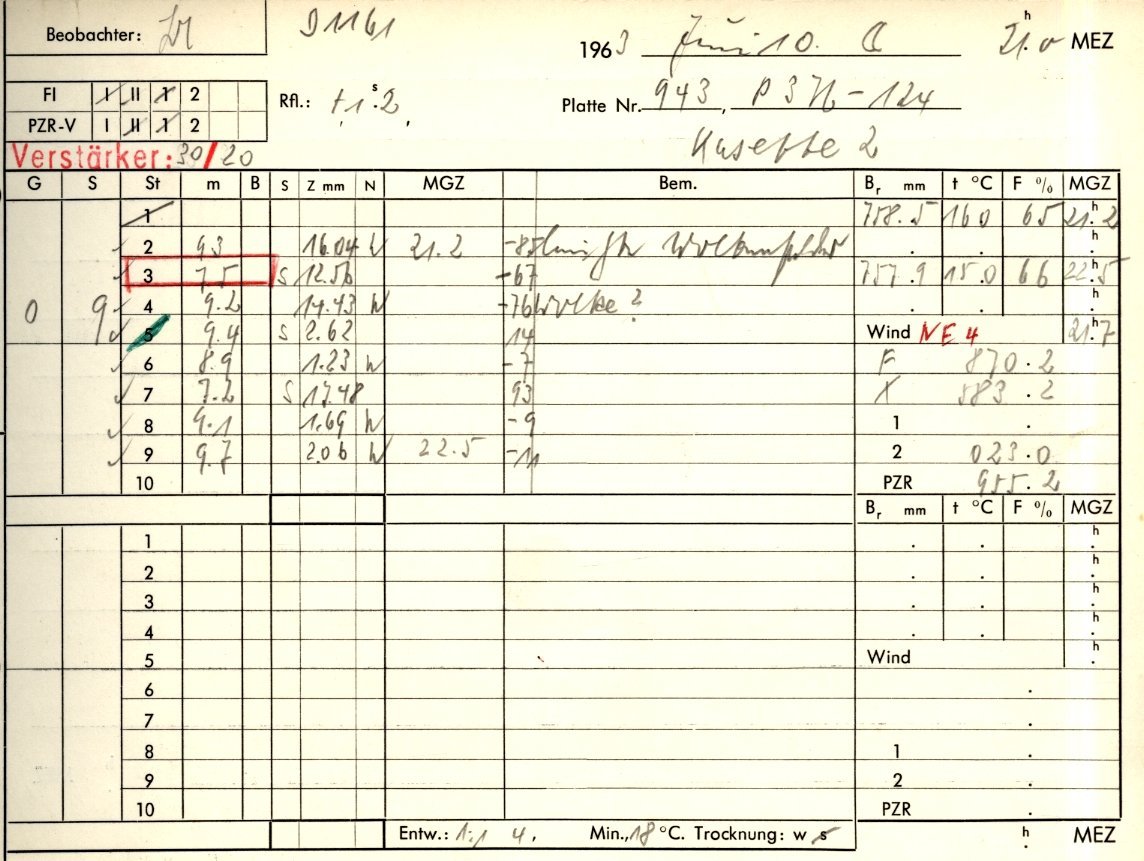 Beobachter:
D1161
1963 Juni 10. 21.0 h MEZ
FI I II 1 2
PZR-V I II 1 2
Rfl.: +1.s2
Platte Nr. 943, P376-124
Kasette 2
Verstärker: 30/20
G S St m B S Z mm N MGZ Bem. Br mm t °C F % MGZ
1 758.5 16 0 65 21.h2
2 9.3 16.04 N 21.2 -85 Wolkenfelder h
3 7.5 S 12.56 -67 757.9 15.0 66 22.h5
0 9 4 9.2 14.43 N -76 Wolke? h
5 9.4 S 2.62 14 Wind NE 4 21.h7
6 8.9 1.23 N -7 F 870.2
7 7.2 S 17.48 93 X 583.2
8 9.1 1.69 N -9 1 .
9 9.7 2.06 N 22.5 -11 2 023.0
10 PZR 955.2
Br mm t °C F % MGZ
1 . . h
2 . . h
3 . . h
4 . . h
5 Wind h
6 .
7 .
8 1 .
9 2 .
10 PZR .
Entw.: 1:1 4. Min., 18 °C. Trocknung: w s h MEZ